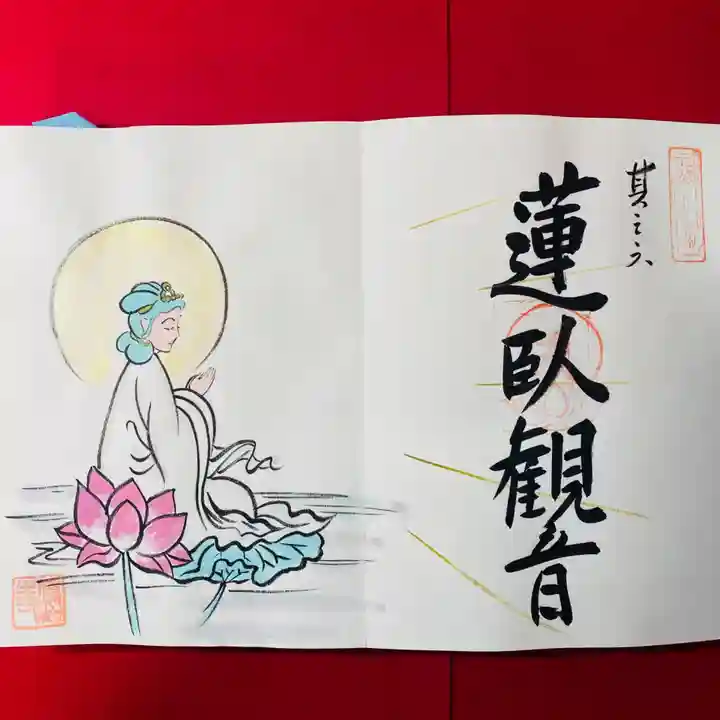 其之六
蓮臥観音